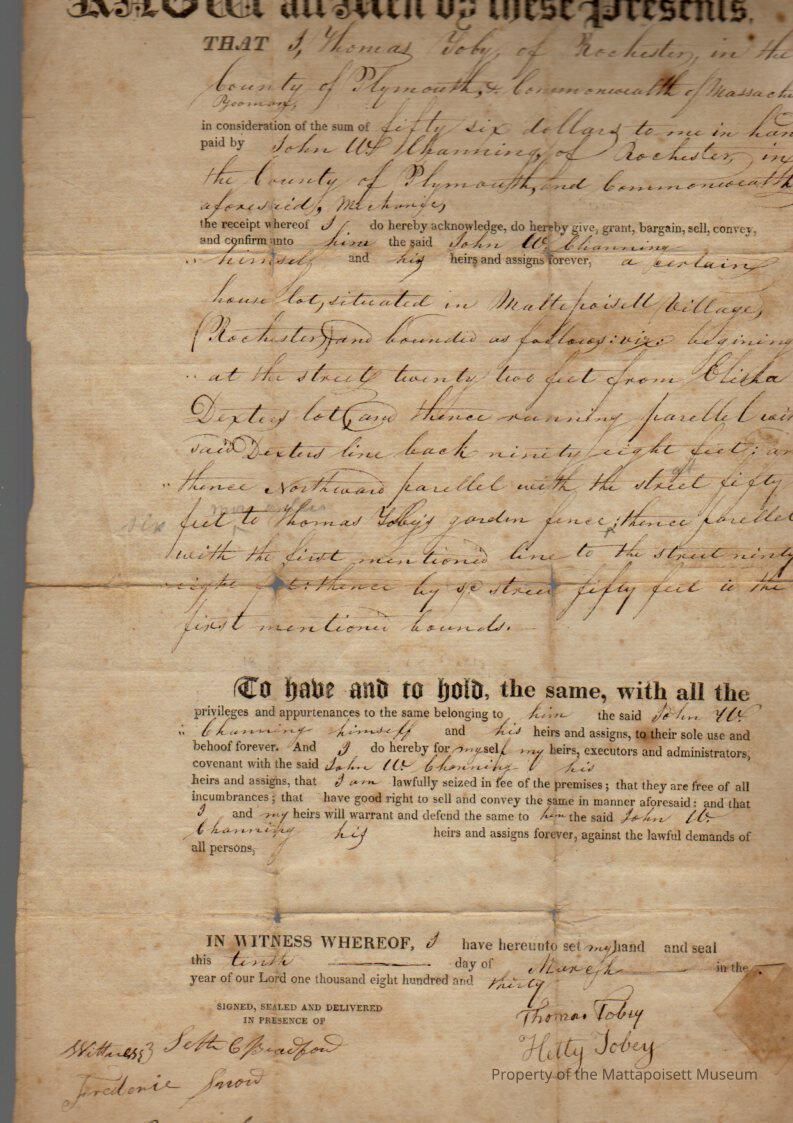 KNOW all Men by these Presents,
THAT I, Thomas Toby, of Rochester, in the
County of Plymouth, & Commonwealth of Massach
Yeoman,
in consideration of the sum of fifty six dollars to me in han
paid by John W Channing, of Rochester, in
the County of Plymouth, and Commonwealth
aforesaid, Mechanic,
the receipt whereof I do hereby acknowledge, do hereby give, grant, bargain, sell, convey,
and confirm unto him the said John W. Channing
himself and his heirs and assigns forever, a certain
house lot, situated in Mattapoisett Village,
(Rochester) and bounded as follows: viz: begining
at the street twenty two feet from Elisha
Dexters lot, and thence running parellel wit
said Dexters line back ninity eight feet; an
thence Northward parellel with the street fifty
feet to Thomas Toby's gardin fence; thence parellel
with the first mentioned line to the street ninty
eight feet: thence by sd street fifty feet to the
first mentioned bounds.
To have and to hold, the same, with all the
privileges and appurtenances to the same belonging to him the said John W
Channing himself and his heirs and assigns, to their sole use and
behoof forever. And I do hereby for myself my heirs, executors and administrators,
covenant with the said John W Channing his
heirs and assigns, that I am lawfully seized in fee of the premises; that they are free of all
incumbrances; that have good right to sell and convey the same in manner aforesaid: and that
I and my heirs will warrant and defend the same to him the said John W.
Channing his heirs and assigns forever, against the lawful demands of
all persons,
IN WITNESS WHEREOF, I have hereunto set my hand and seal
this tenth day of March in the
year of our Lord one thousand eight hundred and thirty
SIGNED, SEALED AND DELIVERED
IN PRESENCE OF
Thomas Tobey
Witness Seth C Bradford
Hetty Tobey
Frederic Snow
Property of the Mattapoisett Museum